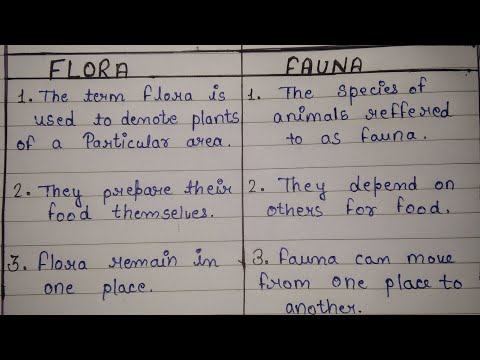 FLORA
1. The term flora is
used to denote plants
of a Particular area.
2. They prepare their
food themselves.
3. flora remain in
one place.
FAUNA
1. The species of
animals reffered
to as fauna.
2. They depend on
others for food.
3. fauna can move
from one place to
another.